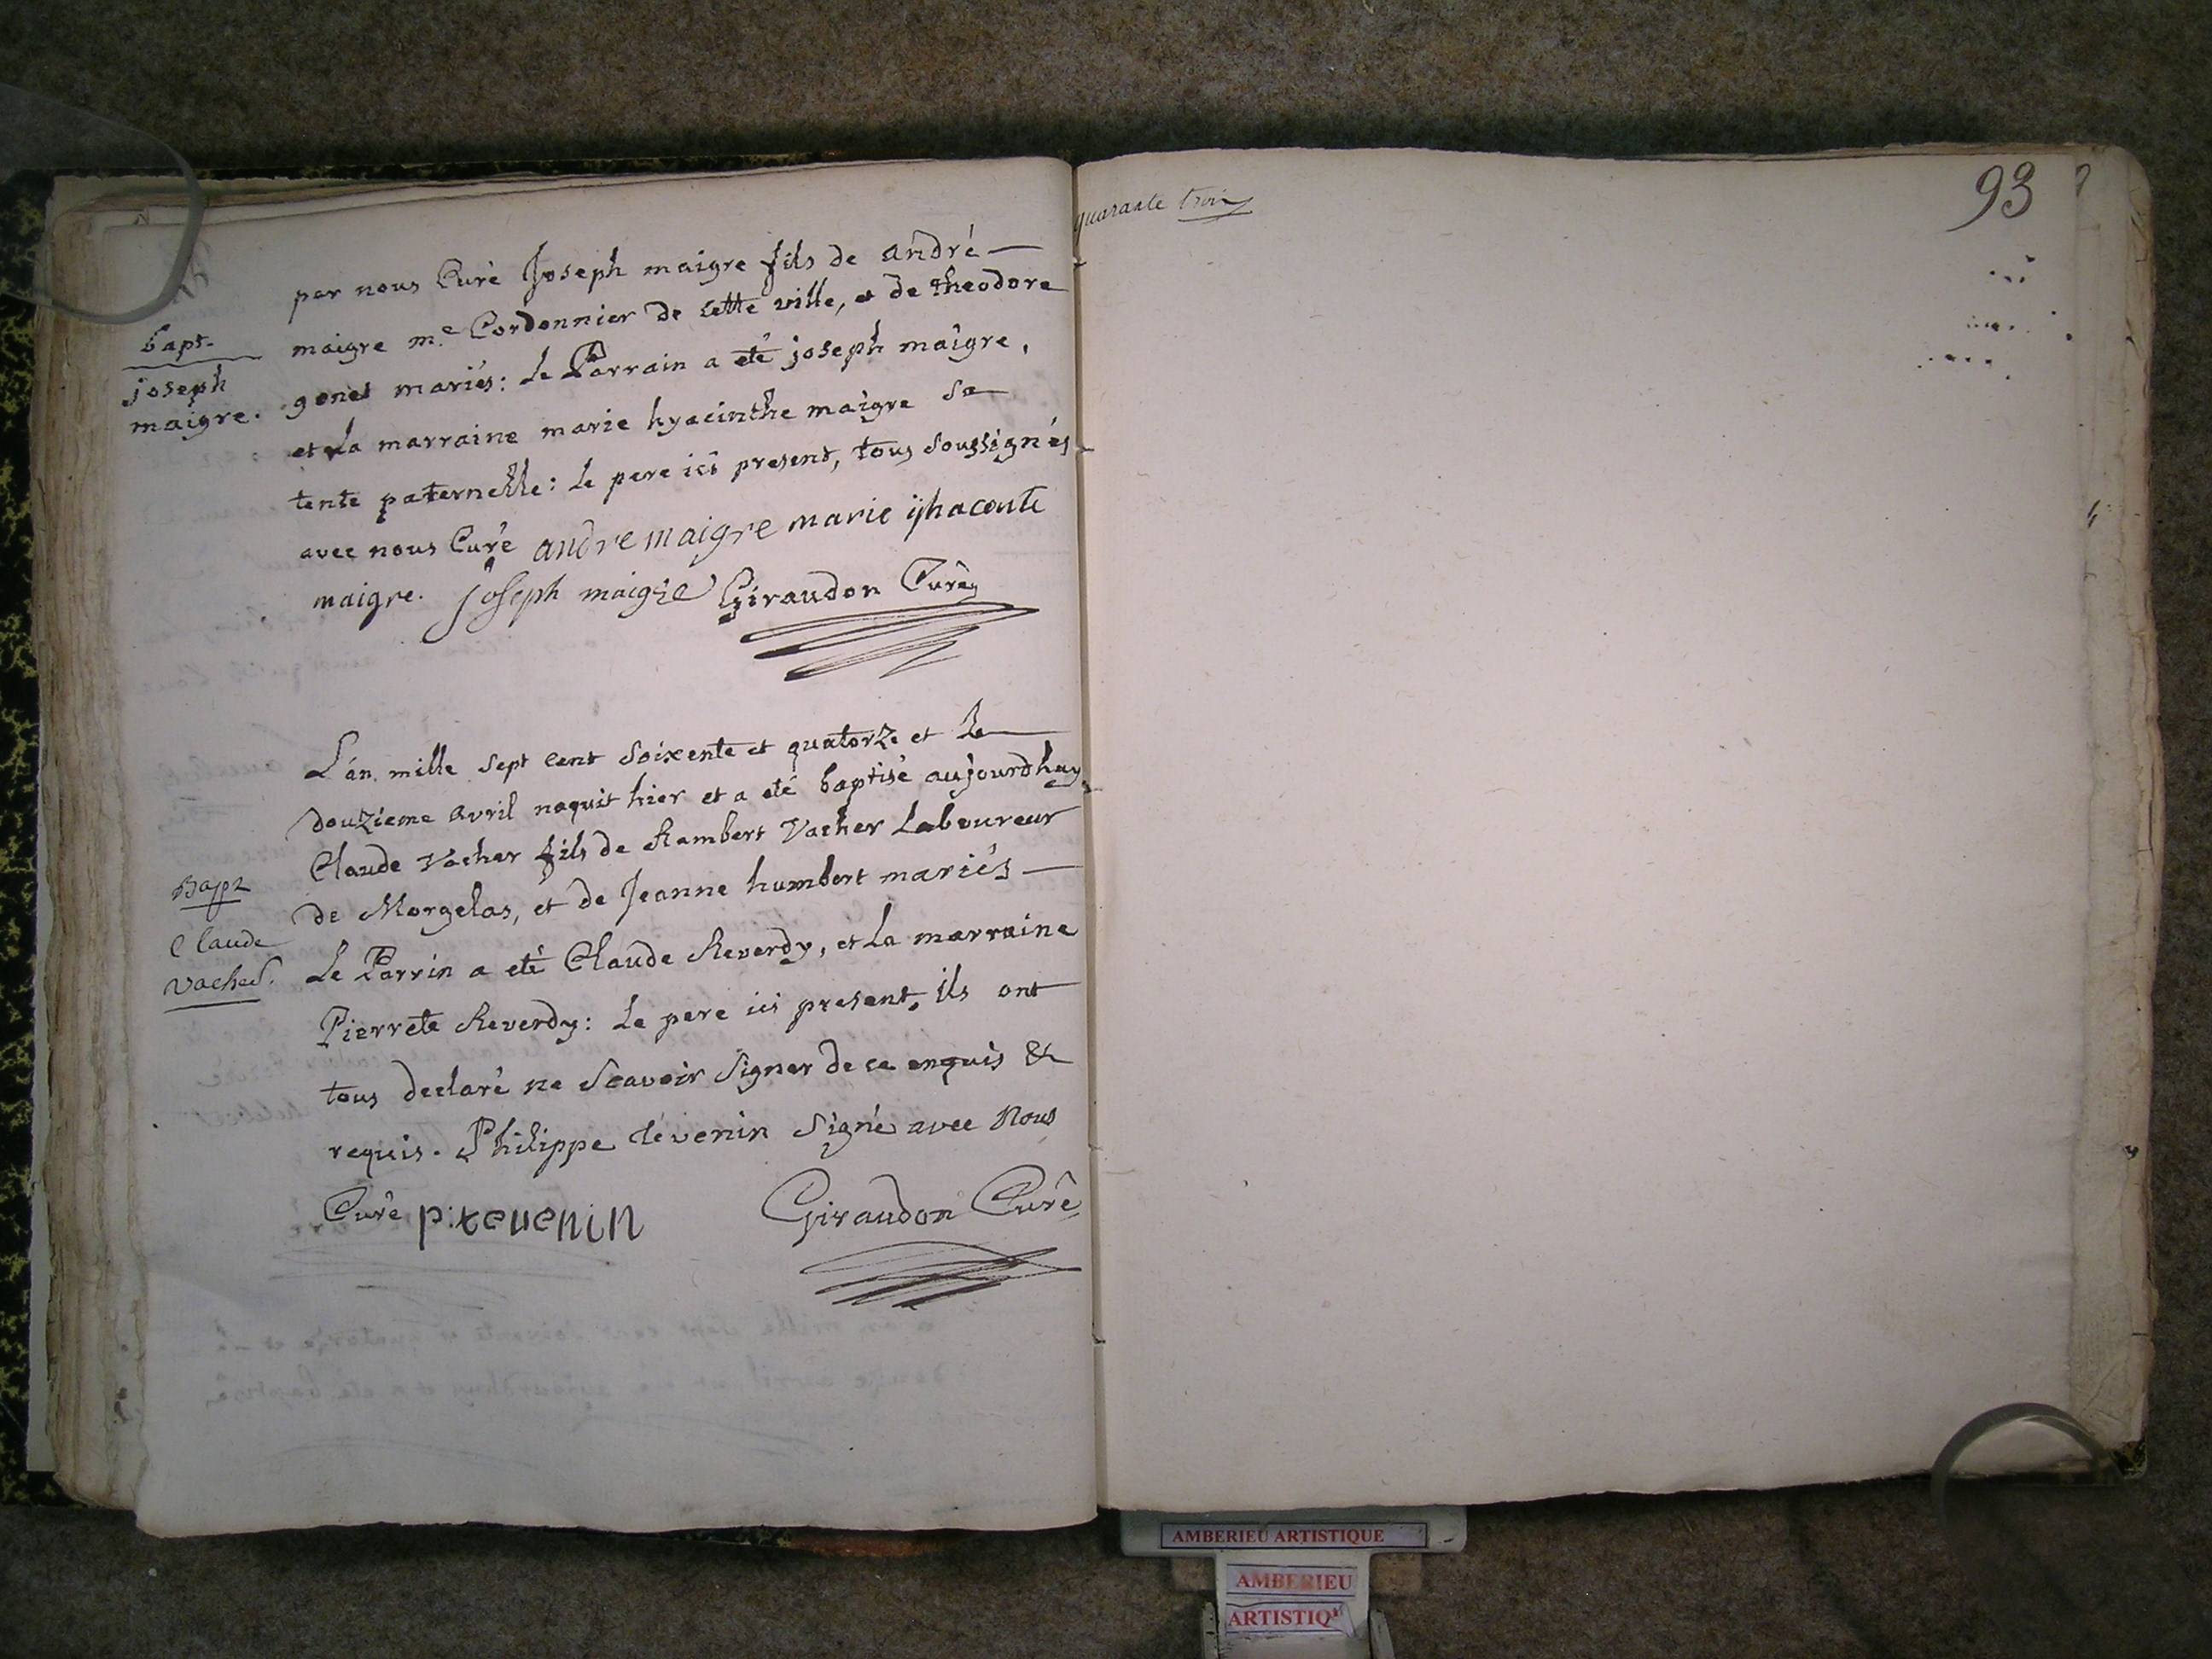 par nous Curé Joseph maigre fils de andré
bapt.
maigre m.e Cordonnier de cette ville, et de theodore
joseph
maigre.
gonet mariés: Le Parrain a eté joseph maigre,
et La marraine marie hyacinthe maigre sa
tente paternelle: Le pere ici present, tous soussignés
avec nous Curé andre maigre marie ÿhaconte
maigre. joseph maigre Giraudon Curé
L'an mille sept cent soixente et quatorze et le
douzieme avril naquit hier et a eté baptisé aujourdhuy
Claude Vacher fils de Rambert Vacher Laboureur
Bapt
de Morgelas, et de Jeanne humbert mariés
Claude
Vacher.
Le Parrin a eté Claude Reverdy, et La marraine
Pierrete Reverdy: Le pere ici present, ils ont
tous declaré ne Scavoir Signer de ce enquis &
requis. Philippe tévenin Signé avec Nous
Curé p:tevenin Giraudon Curé
quarante trois
93
AMBERIEU ARTISTIQUE
AMBERIEU
ARTISTIQ